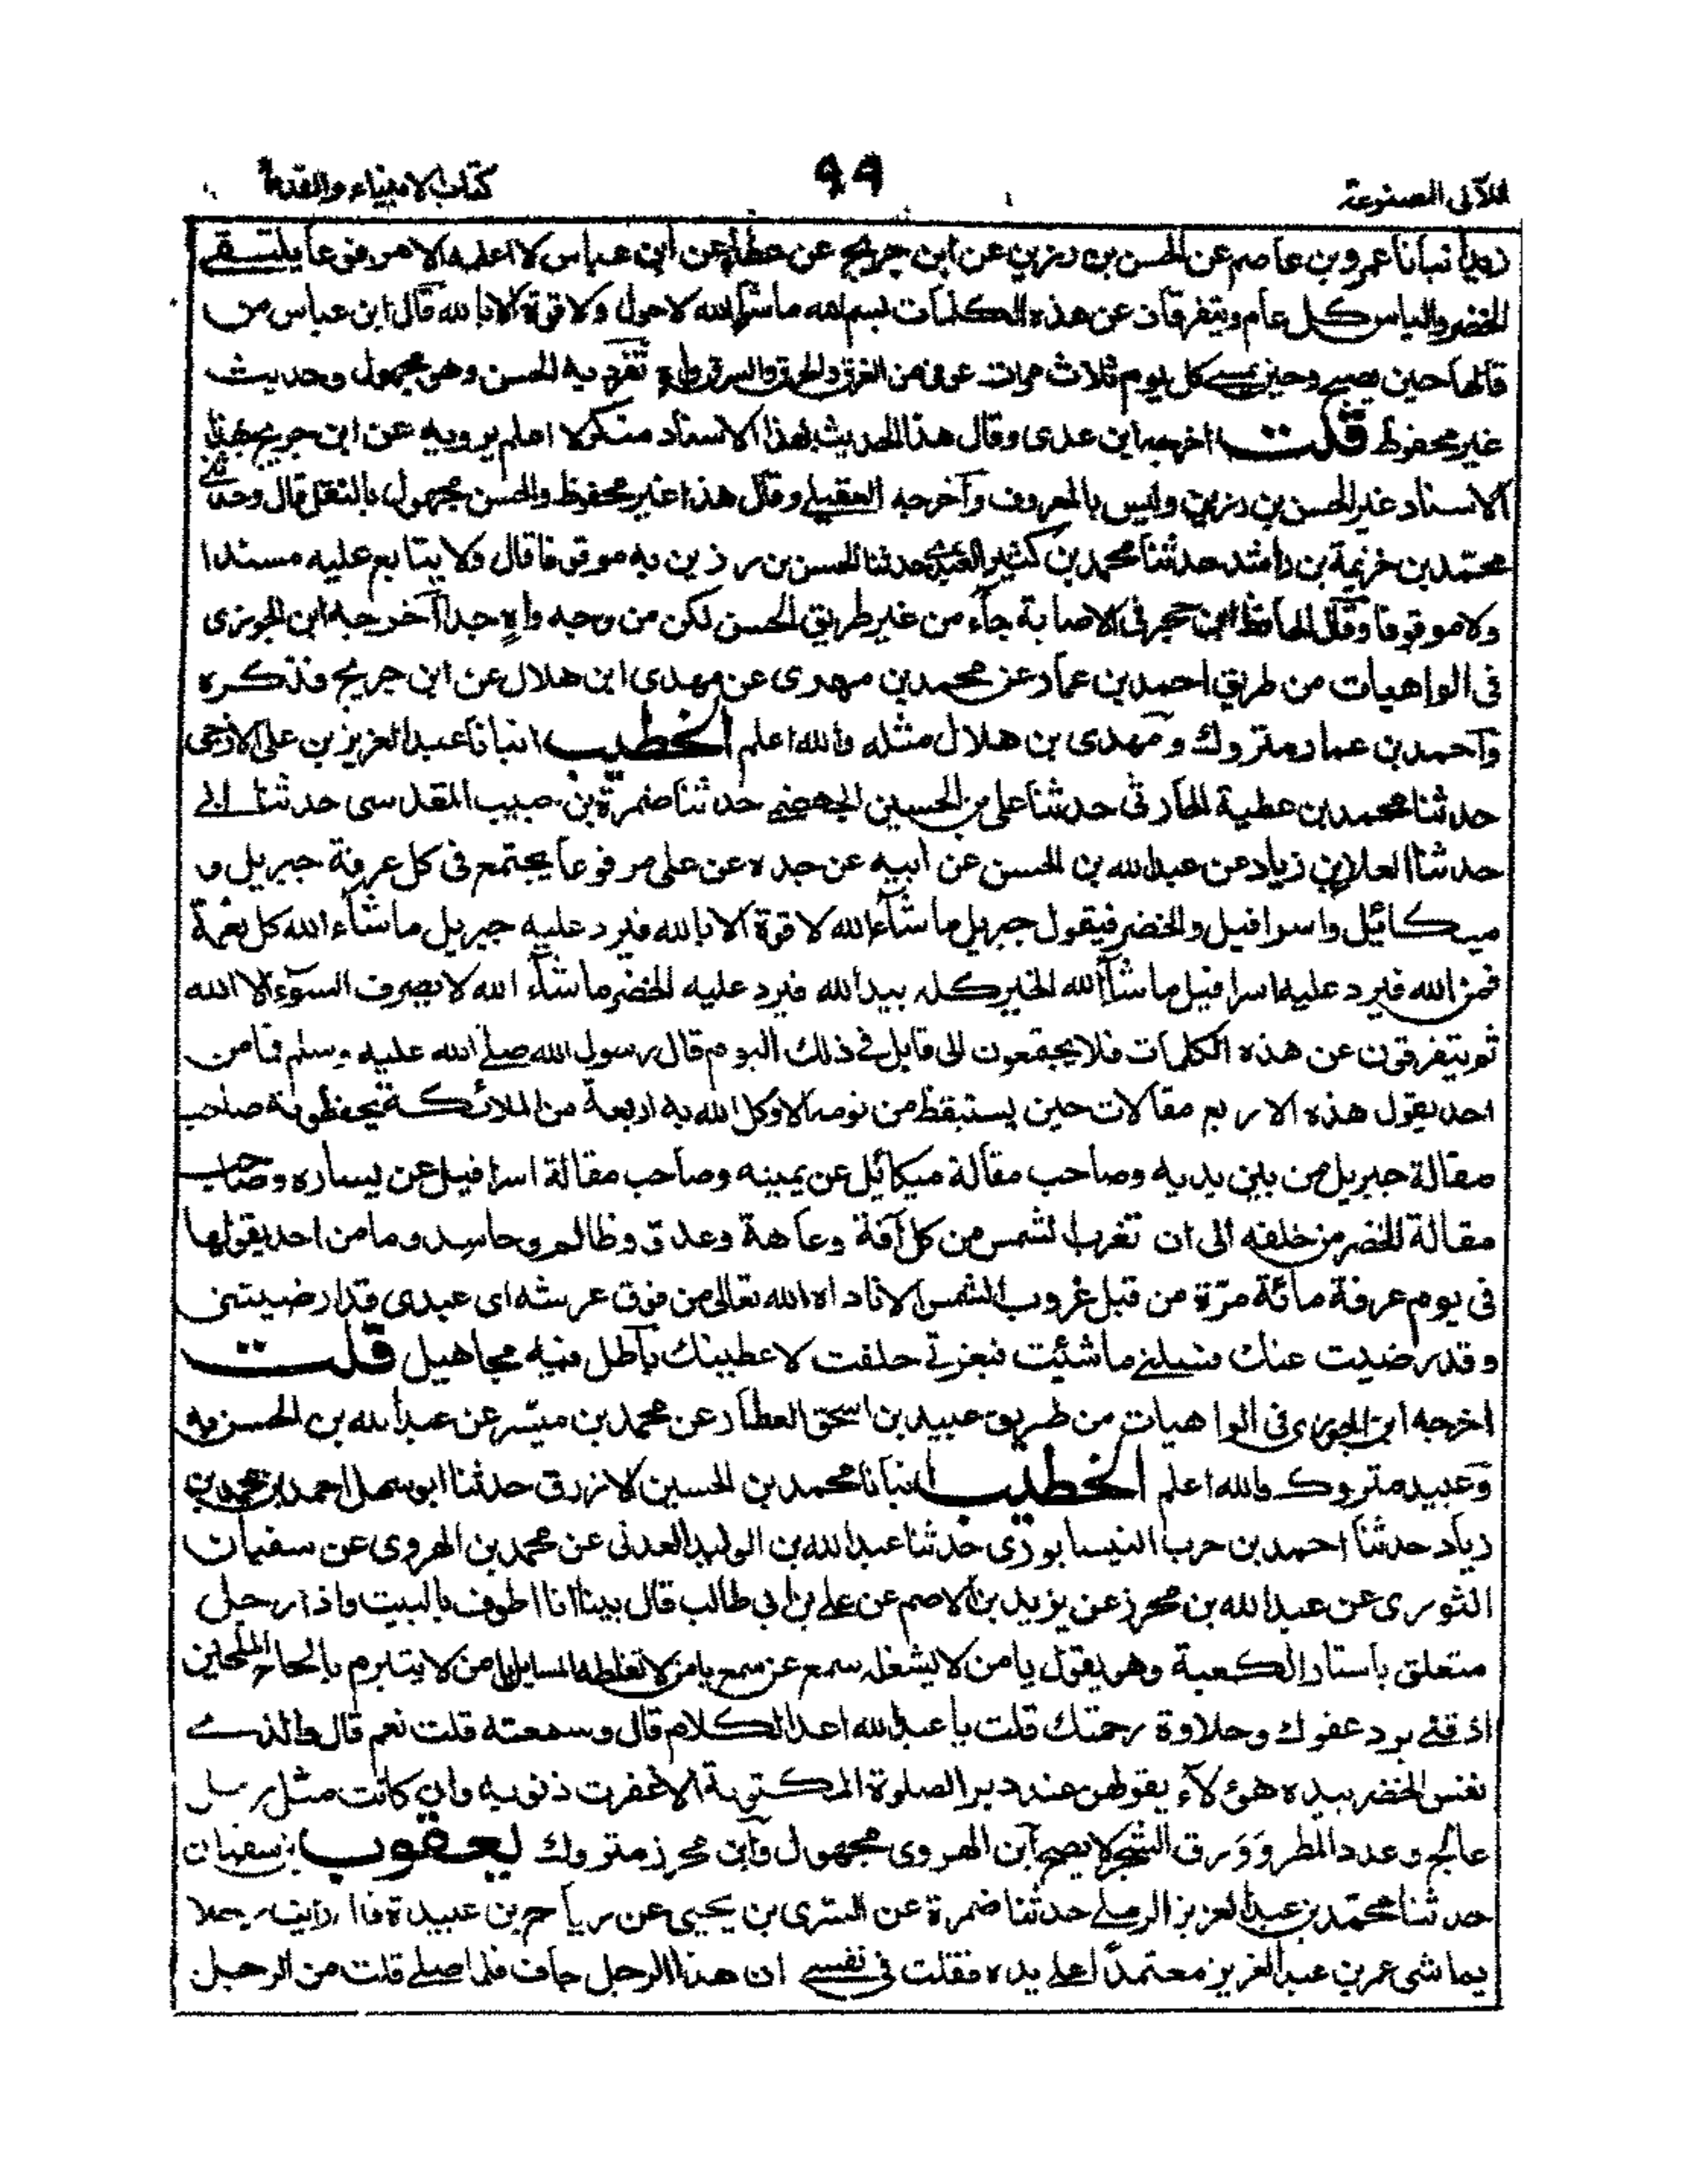 اللآلى المصنوعة ٩٩ كتاب الانبياء والقدما
زيد انبأنا عمرو بن عاصم عن الحسن بن رزين عن ابن جريج عن عطاء عن ابن عباس لا اعلمه الا مرفوعا يلتقى
الخضر والياس كل عام ويتفرقان عن هذه الكلمات بسم الله ما شاء الله لا حول ولا قوة الا بالله قال ابن عباس من
قالها حين يصبح وحين يمسى كل يوم ثلاث مرات عوفى من الغرق والحرق والسرق تفرد به الحسن وهو مجهول وحديث
غير محفوظ قلت اخرجه ابن عدى وقال هذا الحديث بهذا الاسناد منكر لا اعلم يرويه عن ابن جريج بهذا
الاسناد غير الحسن بن رزين وليس بالمعروف وآخرجه العقيلى وقال هذا غير محفوظ والحسن مجهول بالنقل قال وحدثنى
محمد بن خزيمة بن راشد حدثنا محمد بن كثير العبدى حدثنا الحسن بن رزين به موقوفا قال ولا يتابع عليه مسندا
ولا موقوفا وقال الحافظ ابن حجر فى الاصابة جاء من غير طريق الحسن لكن من وجه واهٍ جدا آخرجه ابن الجوزى
فى الواهيات من طريق احمد بن عمار عن محمد بن مهدى عن مهدى ابن هلال عن ابن جريج فذكره
وآحمد بن عمار متروك ومهدى بن هلال مثله والله اعلم الخطيب انبانا عبد العزيز بن على الازجى
حدثنا محمد بن عطية الحارثى حدثنا على بن الحسين الجهضمى حدثنا ضمرة بن حبيب المقدسى حدثنا ابى
حدثنا العلاء بن زياد عن عبد الله بن الحسن عن ابيه عن جده عن على مرفوعا يجتمع فى كل عرفة جبريل و
ميكائيل واسرافيل والخضر فيقول جبريل ما شاء الله لا قوة الا بالله فيرد عليه جبريل ما شاء الله كل نعمة
فمن الله فيرد عليه اسرافيل ما شاء الله الخير كله بيد الله فيرد عليه الخضر ما شاء الله لا يصرف السوء الا الله
ثم يتفرقون عن هذه الكلمات فلا يجتمعون الى قابل فى ذلك اليوم قال رسول الله صلى الله عليه وسلم فما من
احد يقول هذه الاربع مقالات حين يستيقظ من نومه الا وكل الله به اربعة من الملائكة يحفظونه صاحب
مقالة جبريل من بين يديه وصاحب مقالة ميكائيل عن يمينه وصاحب مقالة اسرافيل عن يساره وصاحب
مقالة الخضر من خلفه الى ان تغرب الشمس من كل آفة وعاهة وعدو وظالم وحاسد وما من احد يقولها
فى يوم عرفة مائة مرّة من قبل غروب الشمس الا ناداه الله تعالى من فوق عرشه اى عبدى قد ارضيتنى
وقد رضيت عنك فسلنى ما شئت فبعزتى حلفت لاعطينك بآطل فيه مجاهيل قلت
اخرجه ابن الجوزى فى الواهيات من طريق عبيد بن اسحق العطار عن محمد بن ميسر عن عبد الله بن الحسن به
وعبيد متروك والله اعلم الخطيب انبانا محمد بن الحسين الازرق حدثنا ابو سهل احمد بن محمد بن
زياد حدثنا احمد بن حرب النيسابورى حدثنا عبد الله بن الوليد العدنى عن محمد بن الهروى عن سفيان
الثورى عن عبد الله بن محرز عن يزيد بن الاصم عن على بن ابى طالب قال بينا انا اطوف بالبيت واذا رجل
متعلق باستار الكعبة وهو يقول يا من لا يشغله سمع عن سمع يا من لا تغلطه المسايل يا من لا يتبرم بالحاح الملحين
اذقنى برد عفوك وحلاوة رحمتك قلت يا عبد الله اعد الكلام قال وسمعته قلت نعم قال والذى
نفس الخضر بيده هؤلآء يقولهن عند دبر الصلوة المكتوبة الا غفرت ذنوبه وان كانت مثل رمل
عالج وعدد المطر وَوَرق الشجر لا يصح آبن الهروى مجهول وآبن محرز متروك يعقوب بن سفيان
حدثنا محمد بن عبد العزيز الرملى حدثنا ضمرة عن السرى بن يحيى عن رياح بن عبيدة قال رايت رجلا
يماشى عمر بن عبد العزيز معتمدا على يده فقلت فى نفسى ان هذا الرجل جاف فلما صلى قلت من الرجل